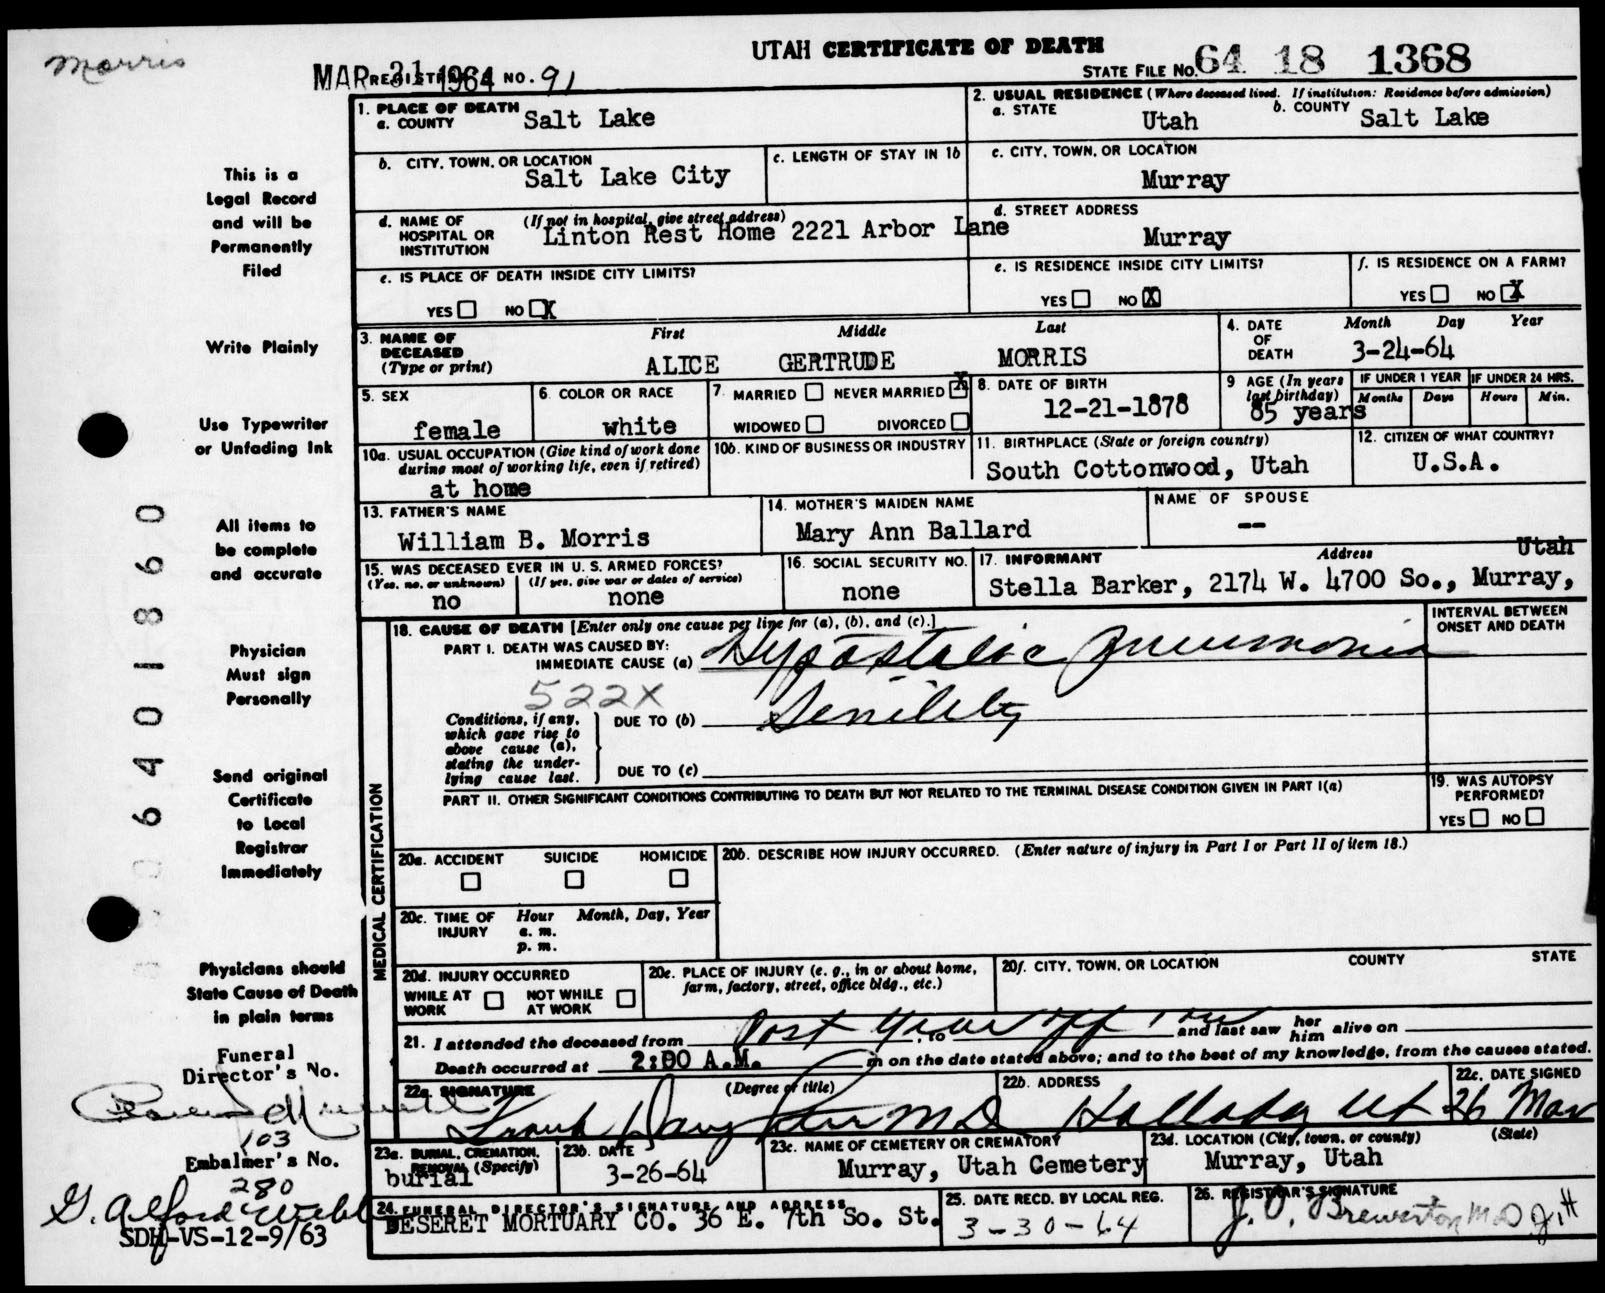 Morris
UTAH CERTIFICATE OF DEATH
MAR 31 1964
REGISTRAR'S NO. 91
STATE FILE NO. 64 18 1368
1. PLACE OF DEATH
a. COUNTY Salt Lake
2. USUAL RESIDENCE (Where deceased lived. If institution: Residence before admission)
a. STATE Utah b. COUNTY Salt Lake
b. CITY, TOWN, OR LOCATION
Salt Lake City
c. LENGTH OF STAY IN 1b
c. CITY, TOWN, OR LOCATION
Murray
d. NAME OF HOSPITAL OR INSTITUTION (If not in hospital, give street address)
Linton Rest Home 2221 Arbor Lane
d. STREET ADDRESS
Murray
e. IS PLACE OF DEATH INSIDE CITY LIMITS?
YES NO X
e. IS RESIDENCE INSIDE CITY LIMITS?
YES NO X
f. IS RESIDENCE ON A FARM?
YES NO X
3. NAME OF DECEASED (Type or print)
First Middle Last
ALICE GERTRUDE MORRIS
4. DATE OF DEATH Month Day Year
3-24-64
5. SEX
female
6. COLOR OR RACE
white
7. MARRIED NEVER MARRIED X
WIDOWED DIVORCED
8. DATE OF BIRTH
12-21-1878
9 AGE (In years last birthday)
85 years
IF UNDER 1 YEAR
Months Days
IF UNDER 24 HRS.
Hours Min.
10a. USUAL OCCUPATION (Give kind of work done during most of working life, even if retired)
at home
10b. KIND OF BUSINESS OR INDUSTRY
11. BIRTHPLACE (State or foreign country)
South Cottonwood, Utah
12. CITIZEN OF WHAT COUNTRY?
U.S.A.
13. FATHER'S NAME
William B. Morris
14. MOTHER'S MAIDEN NAME
Mary Ann Ballard
NAME OF SPOUSE
--
15. WAS DECEASED EVER IN U. S. ARMED FORCES?
(Yes, no, or unknown) (If yes, give war or dates of service)
no none
16. SOCIAL SECURITY NO.
none
17. INFORMANT Address
Stella Barker, 2174 W. 4700 So., Murray, Utah
18. CAUSE OF DEATH [Enter only one cause per line for (a), (b), and (c).]
INTERVAL BETWEEN ONSET AND DEATH
PART I. DEATH WAS CAUSED BY:
IMMEDIATE CAUSE (a) Hypostatic Pneumonia
522X
Conditions, if any, which gave rise to above cause (a), stating the underlying cause last.
DUE TO (b) Senility
DUE TO (c)
PART II. OTHER SIGNIFICANT CONDITIONS CONTRIBUTING TO DEATH BUT NOT RELATED TO THE TERMINAL DISEASE CONDITION GIVEN IN PART I(a)
19. WAS AUTOPSY PERFORMED?
YES NO
MEDICAL CERTIFICATION
20a. ACCIDENT SUICIDE HOMICIDE
20b. DESCRIBE HOW INJURY OCCURRED. (Enter nature of injury in Part I or Part II of item 18.)
20c. TIME OF INJURY Hour Month, Day, Year
a. m.
p. m.
20d. INJURY OCCURRED
WHILE AT WORK NOT WHILE AT WORK
20e. PLACE OF INJURY (e. g., in or about home, farm, factory, street, office bldg., etc.)
20f. CITY, TOWN, OR LOCATION COUNTY STATE
21. I attended the deceased from Past Year off , to and last saw her him alive on
Death occurred at 2:00 A.M. m on the date stated above; and to the best of my knowledge, from the causes stated.
22a. SIGNATURE (Degree or title)
Frank MD
22b. ADDRESS
Holladay Ut
22c. DATE SIGNED
26 Mar
23a. BURIAL, CREMATION, REMOVAL (Specify)
burial
23b. DATE
3-26-64
23c. NAME OF CEMETERY OR CREMATORY
Murray, Utah Cemetery
23d. LOCATION (City, town, or county) (State)
Murray, Utah
24. FUNERAL DIRECTOR'S SIGNATURE AND ADDRESS
DESERET MORTUARY CO. 36 E. 7th So. St.
25. DATE RECD. BY LOCAL REG.
3-30-64
26. REGISTRAR'S SIGNATURE
Brewerton MD
This is a
Legal Record
and will be
Permanently
Filed
Write Plainly
Use Typewriter
or Unfading Ink
All items to
be complete
and accurate
Physician
Must sign
Personally
Send original
Certificate
to Local
Registrar
Immediately
Physicians should
State Cause of Death
in plain terms
Funeral
Director's No.
103
Embalmer's No.
280
G. Alford Webb
SDH-VS-12-9/63
6401860